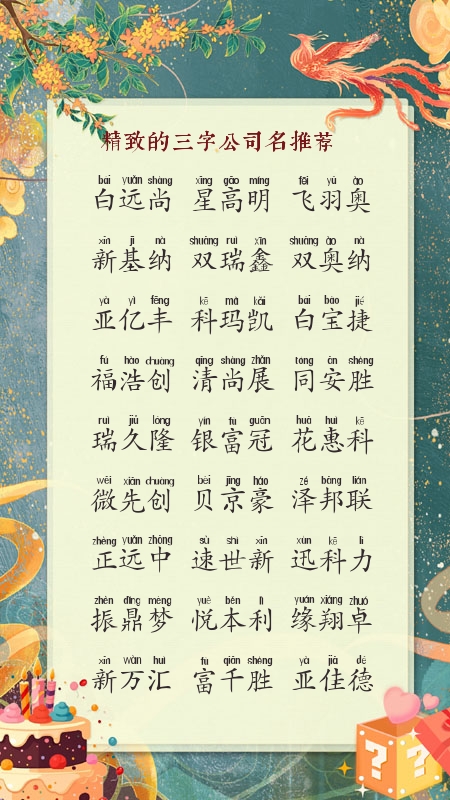 精致的三字公司名推荐
bái yuǎn shàng xīng gāo míng fēi yǔ ào
白远尚 星高明 飞羽奥
xīn jī nà shuāng ruì xīn shuāng ào nà
新基纳 双瑞鑫 双奥纳
yà yì fēng kē mǎ kǎi bái bǎo jié
亚亿丰 科玛凯 白宝捷
fú hào chuàng qīng shàng zhǎn tóng ān shèng
福浩创 清尚展 同安胜
ruì jiǔ lóng yín fù guān huā huì kē
瑞久隆 银富冠 花惠科
wēi xiān chuàng bèi jīng háo zé bāng lián
微先创 贝京豪 泽邦联
zhèng yuǎn zhōng sù shì xīn xùn kē lì
正远中 速世新 迅科力
zhèn dǐng mèng yuè běn lì yuán xiáng zhuó
振鼎梦 悦本利 缘翔卓
xīn wàn huì fù qiān shèng yà jiā dé
新万汇 富千胜 亚佳德
? ?